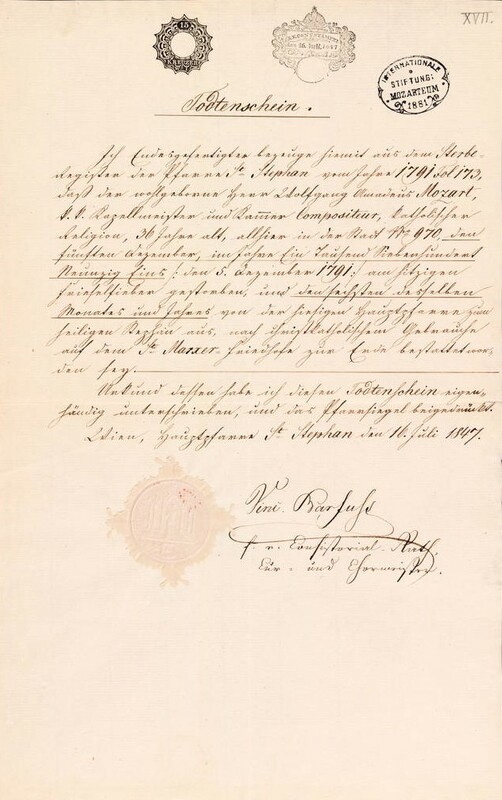 XVII.
15
KREUZER
den 16. Juli. 1847
INTERNATIONALE
STIFTUNG:
MOZARTEUM
1881
Todtenschein.
Ich Endesgefertigter bezeuge hiemit aus dem Sterbe-
Register der Pfarre St. Stephan vom Jahre 1791 Fol 173,
daß der wohlgeborne Herr Wolfgang Amadeus Mozart,
k. k. Kapellmeister und Kammer Compositeur, katholischer
Religion, 36 Jahre alt, allhier in der Stadt No 970, den
fünften Dezember, im Jahre Ein Tausend Siebenhundert
Neunzig Eins /: den 5. Dezember 1791 :/ am hitzigen
Frieselfieber gestorben, und den sechsten desselben
Monates und Jahres von der hiesigen Hauptpfarre zum
heiligen Stephan aus, nach christkatholischem Gebrauche
auf dem St. Marxer-Friedhofe zur Erde bestattet wor-
den sey.
Urkund dessen habe ich diesen Todtenschein eigen-
händig unterschrieben, und das Pfarrsiegel beigedrückt.
Wien, Hauptpfarre St. Stephan den 16. Juli 1847.
Consistorial-Rath,
Cur- und Chormeister.